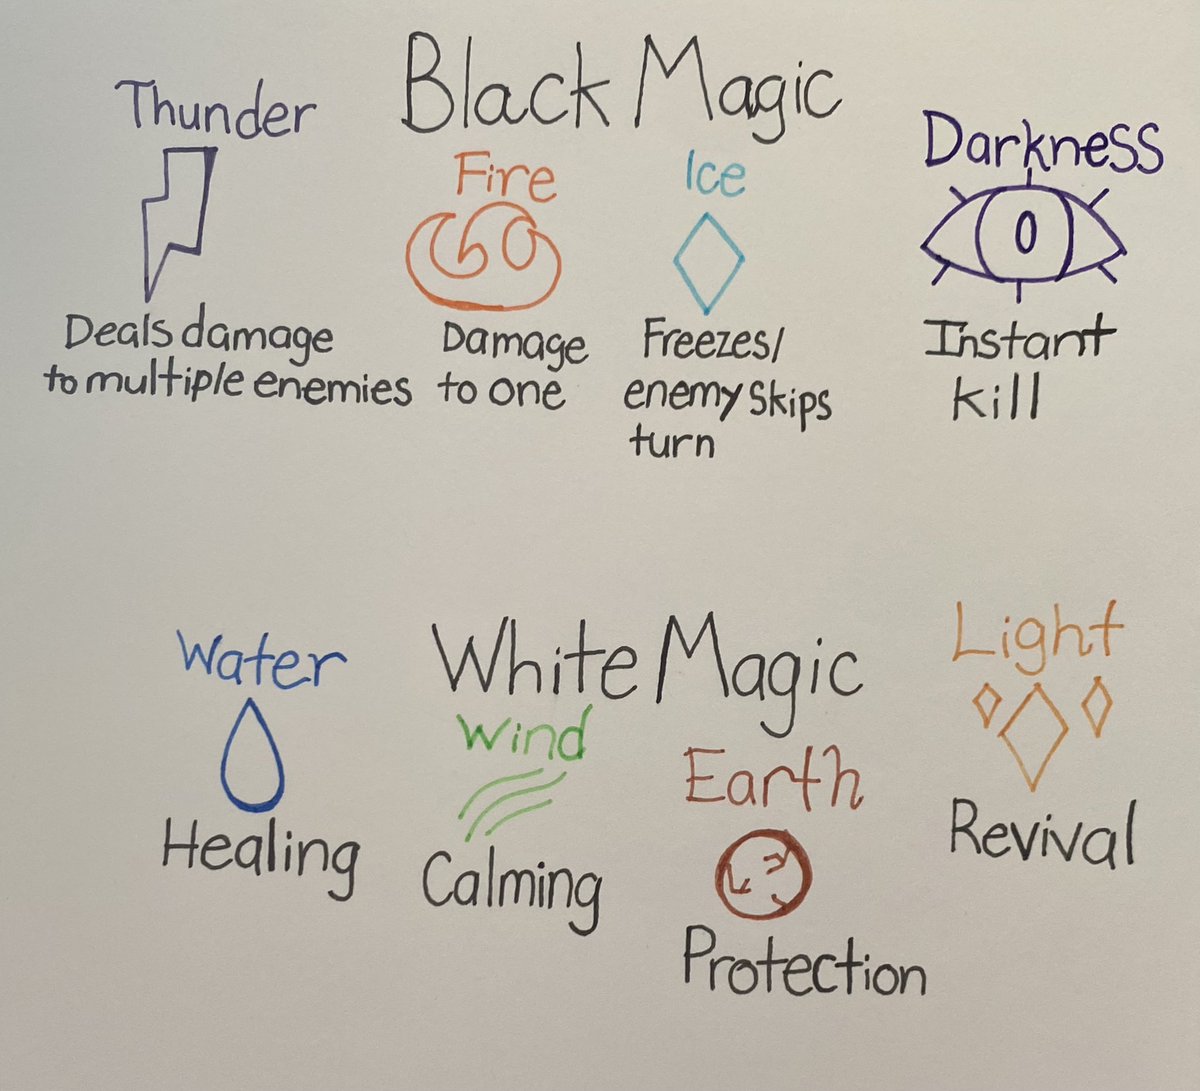 Black Magic
Thunder
Deals damage
to multiple enemies
Fire
Damage
to one
Ice
Freezes/
enemy skips
turn
Darkness
Instant
kill
White Magic
Water
Healing
Wind
Calming
Earth
Protection
Light
Revival